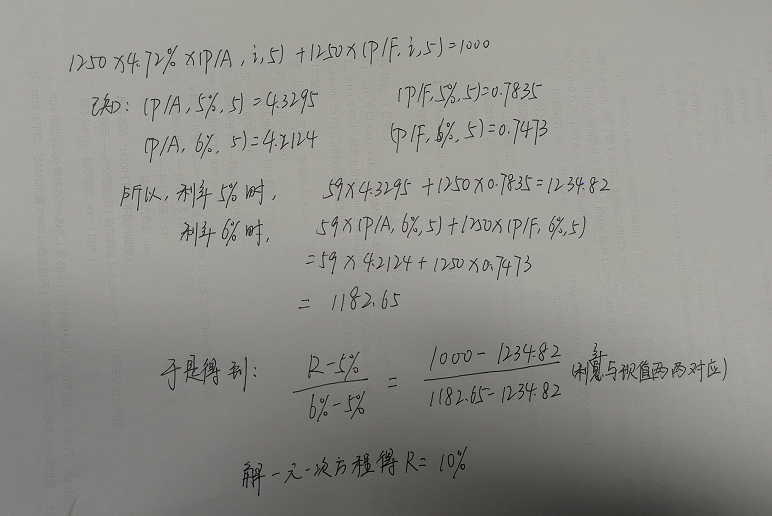 1250×4.72%×(P/A, i, 5) + 1250×(P/F, i, 5) = 1000
已知: (P/A, 5%, 5) = 4.3295 (P/F, 5%, 5) = 0.7835
(P/A, 6%, 5) = 4.2124 (P/F, 6%, 5) = 0.7473
所以, 利率5%时, 59×4.3295 + 1250×0.7835 = 1234.82
利率6%时, 59×(P/A, 6%, 5) + 1250×(P/F, 6%, 5)
= 59×4.2124 + 1250×0.7473
= 1182.65
于是得到: R-5% / 6%-5% = 1000-1234.82 / 1182.65-1234.82 (利率与现值两两对应)
解一元一次方程得R= 10%